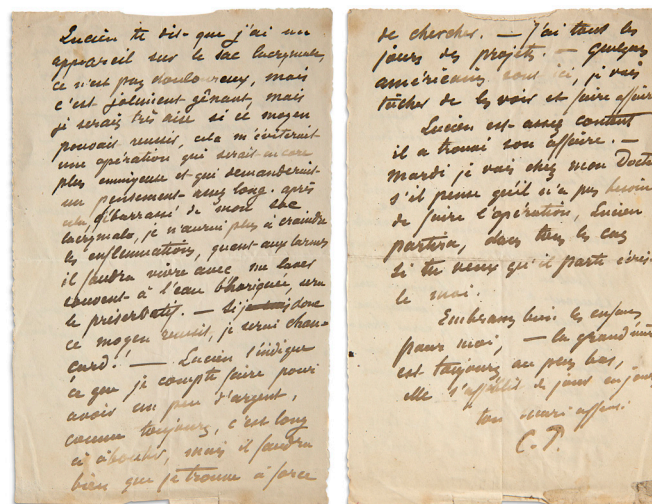 Lucien te dis que j'ai un
appareil sur le sac lacrymale,
ce n'est pas douloureux, mais
c'est joliment gênant, mais
je serais très aise si ce moyen
pouvait reussir, cela m'éviterait
une opération qui serait encore
plus ennuyeuse et qui demanderait
un pensement assez long. après
cela, débarrassé de mon sac
lacrymale, je n'aurai plus à craindre
les enflammations, quant aux larmes
il faudra vivre avec, me laver
souvent à l'eau bhoriquée, sera
le préservatif. — Si donc
ce moyen reussit, je serai chan-
card! — Lucien t'indique
ce que je compte faire pour
avoir un peu d'argent,
comme toujours, c'est long
à aboutir, mais il faudra
bien que je trouve à force
de chercher. — J'ai tout les
jours des projets. — Quelques
américains sont ici, je vais
tâcher de les voir et faire affaire
Lucien est assez content
il a trouvé son affaire. —
Mardi je vais chez mon Docte
s'il pense qu'il n'a pas besoin
de faire l'opération, Lucien
partira, dans tous les cas
si tu veux qu'il parte écris
le moi.
Embrasse bien les enfans
pour moi, — la grand'mère
est toujours au plus bas,
elle s'affaiblit de jour en jour
ton mari affnné
C. P.